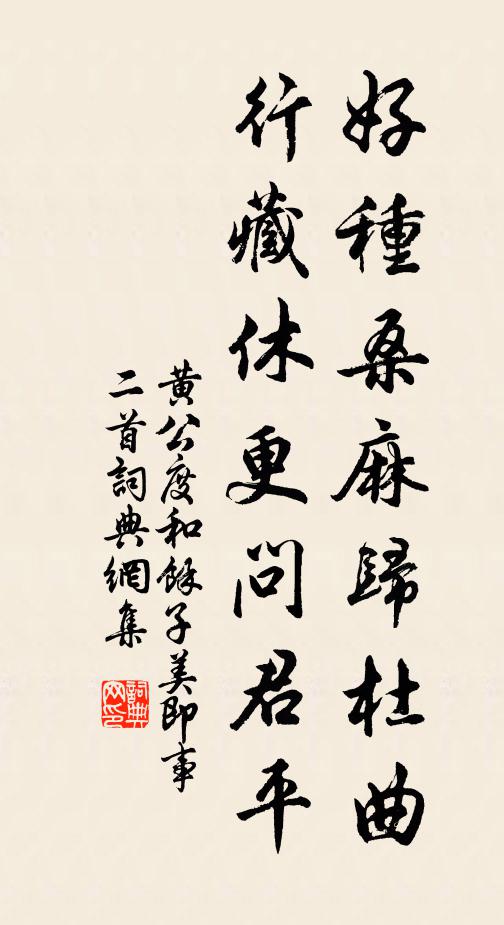 好種桑麻歸杜曲
行藏休更問君平
黃公度和餘子美即事
二首詞典網集
詞典網印